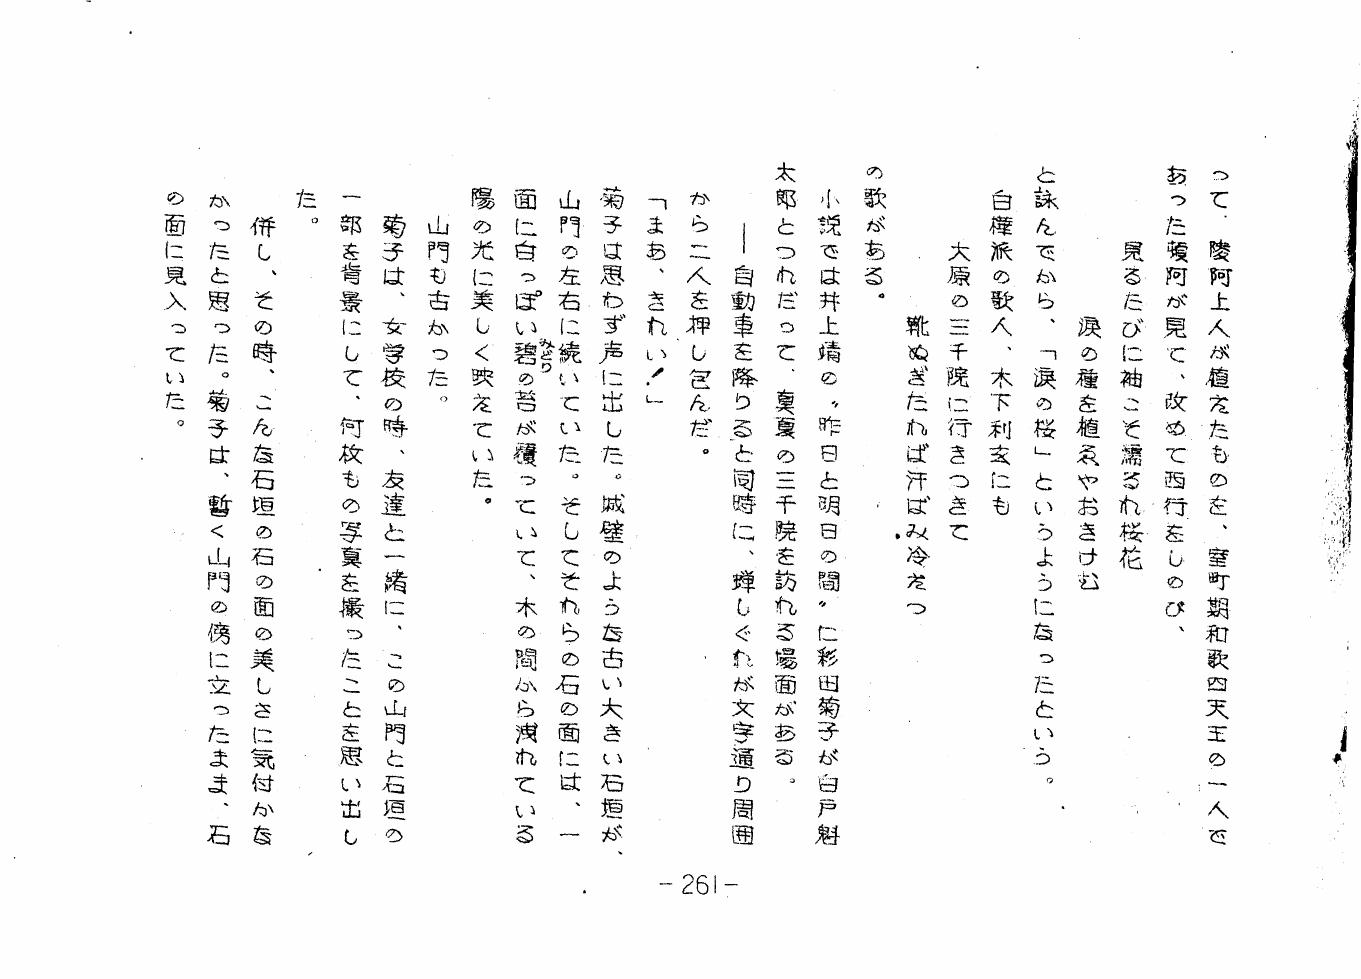 って、陵阿上人が植えたものを、室町期和歌四天王の一人で
あった頓阿が見て、改めて西行をしのび、
見るたびに袖こそ濡るれ桜花
涙の種を植ゑやおきけむ
と詠んでから、「涙の桜」というようになったという。
白樺派の歌人、木下利玄にも
大原の三千院に行きつきて
靴ぬぎたれば汗ばみ冷たつ
の歌がある。
小説では井上靖の〝昨日と明日の間〟に彩田菊子が白戸魁
太郎とつれだって、真夏の三千院を訪れる場面がある。
――自動車を降りると同時に、蝉しぐれが文字通り周囲
から二人を押し包んだ。
「まあ、きれい！」
菊子は思わず声に出した。城壁のような古い大きい石垣が、
山門の左右に続いていた。そしてそれらの石の面には、一
面に白っぽい碧みどりの苔が覆っていて、木の間から洩れている
陽の光に美しく映えていた。
山門も古かった。
菊子は、女学校の時、友達と一緒に、この山門と石垣の
一部を背景にして、何枚もの写真を撮ったことを思い出し
た。
併し、その時、こんな石垣の石の面の美しさに気付かな
かったと思った。菊子は、暫く山門の傍に立ったまま、石
の面に見入っていた。
-261-